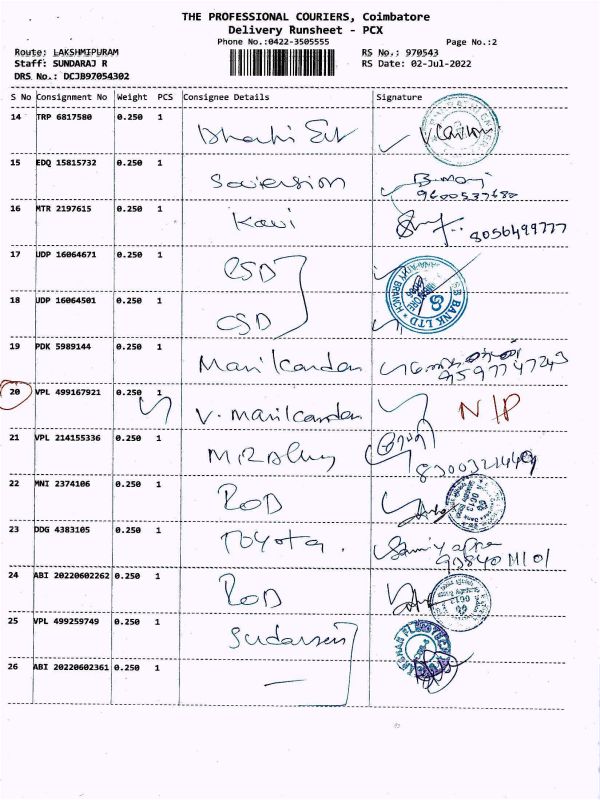 THE PROFESSIONAL COURIERS, Coimbatore
Delivery Runsheet - PCX
Phone No.:0422-3505555 Page No.:2
Route: LAKSHMIPURAM RS No.: 970543
Staff: SUNDARAJ R RS Date: 02-Jul-2022
DRS No.: DCJB97054302
S No Consignment No Weight PCS Consignee Details Signature
14 TRP 6817580 0.250 1
15 EDQ 15815732 0.250 1
16 MTR 2197615 0.250 1 Kavi 8056499777
17 UDP 16064671 0.250 1 CSD
18 UDP 16064501 0.250 1 CSD
BANK LTD
19 PDK 5989144 0.250 1 Manikandan 9597747243
20 VPL 499167921 0.250 1 V. Manikandan N/P
21 VPL 214155336 0.250 1
22 MNI 2374106 0.250 1 ROD
23 DDG 4383105 0.250 1 Toyota.
24 ABI 20220602262 0.250 1 ROD
25 VPL 499259749 0.250 1 Sudarsen
26 ABI 20220602361 0.250 1 —